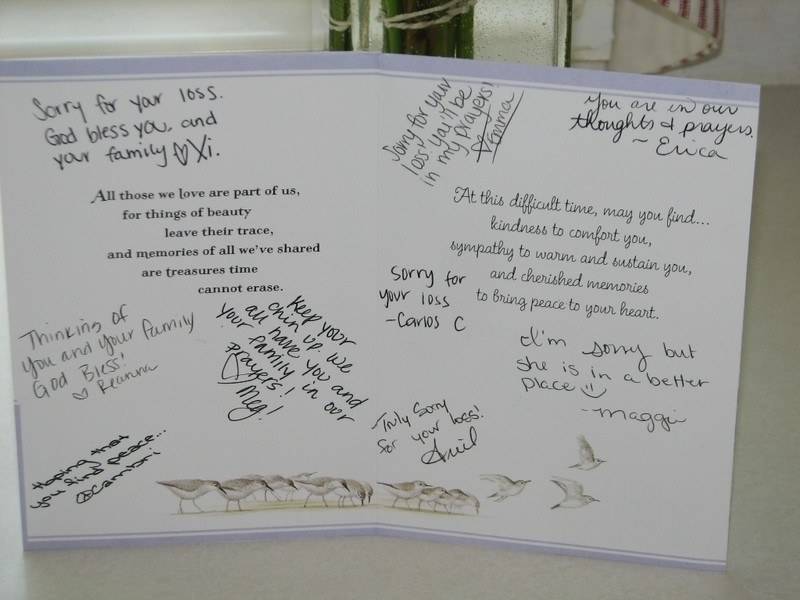 Sorry for your loss.
God bless you, and
your family ♡ Xi.
All those we love are part of us,
for things of beauty
leave their trace,
and memories of all we've shared
are treasures time
cannot erase.
Thinking of
you and your family
God Bless!
♡ Reanna
Keep your
chin up. we
all have you and
your family in our
prayers!
Meg!
Hoping that
you find peace...
Cambri
Sorry for your
loss! Ya'll be
in my prayers!
♡ Emma
You are in our
thoughts & prayers.
~ Erica
At this difficult time, may you find...
kindness to comfort you,
sympathy to warm and sustain you,
and cherished memories
to bring peace to your heart.
Sorry for
your loss
-Carlos C
I'm sorry but
she is in a better
place ☺
-Maggi
Truly Sorry
for your loss!